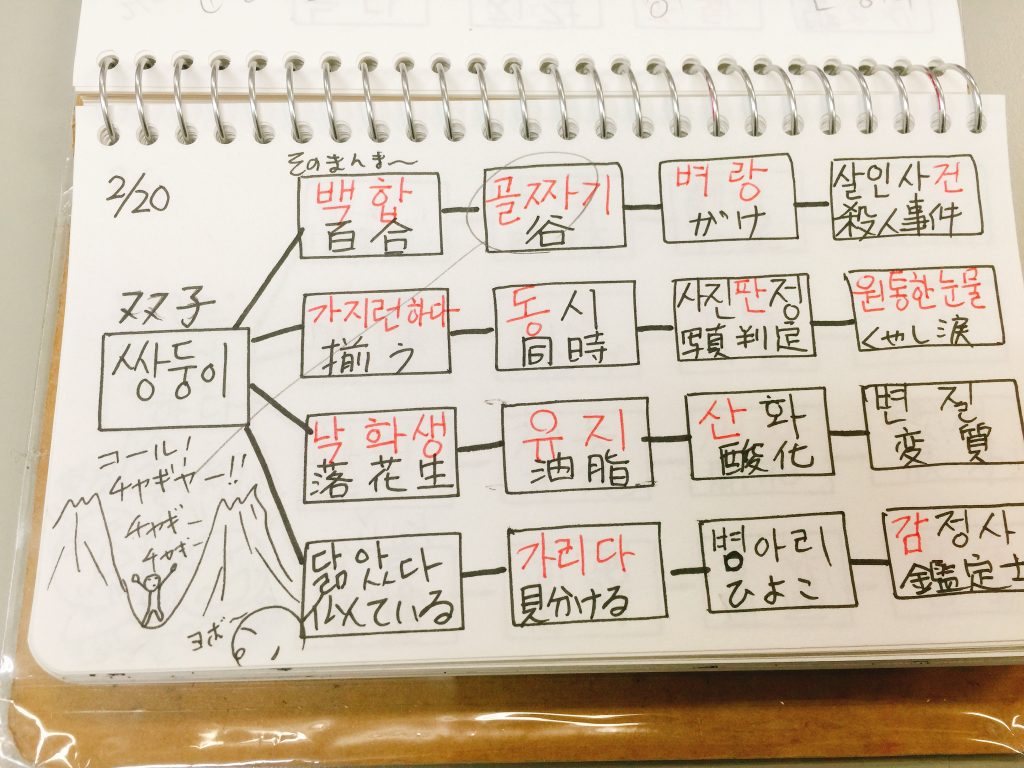 2/20
そのまんま〜
백합
百合
골짜기
谷
벼랑
がけ
살인사건
殺人事件
双子
쌍둥이
가지런하다
揃う
동시
同時
사진판정
写真判定
원통한눈물
くやし涙
낙화생
落花生
유지
油脂
산화
酸化
변질
変質
닮았다
似ている
가리다
見分ける
병아리
ひよこ
감정사
鑑定士
コール!
チャギヤー!!
チャギー
チャギー
ヨボー